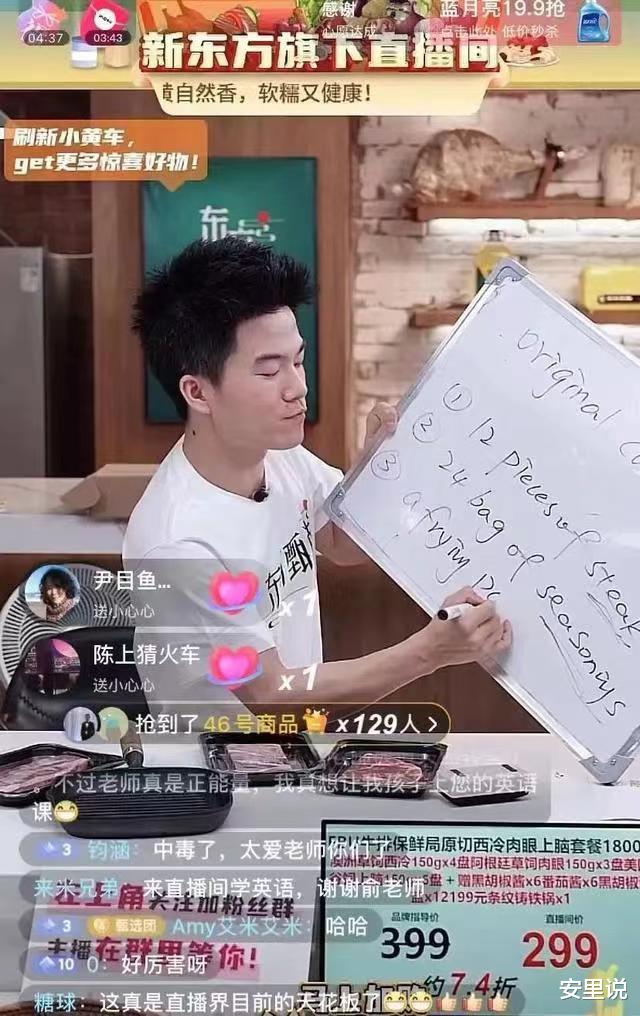 04:37
03:43
感谢
心愿达成
蓝月亮19.9抢
点击此处 低价秒杀
新东方旗下直播间
黄自然香，软糯又健康！
刷新小黄车，
get更多惊喜好物！
东
original
① 12 pieces of steak
② 24 bag of seasonings
③ a frying
东方甄
尹目鱼...
送小心心
x 1
陈上猜火车
送小心心
x 1
抢到了46号商品 x129人 >
。不过老师真是正能量，我真想让我孩子上您的英语
课😁
3 钧涵：中毒了，太爱老师你们了
来米兄弟：来直播间学英语，谢谢俞老师
在左上角关注加粉丝群
3 甄选团 Amy艾米艾米：哈哈
主播在群里等你！
10 0：好厉害呀
糖球：这真是直播界目前的天花板了😁😁👍👍👍
牛排保鲜局原切西冷肉眼上脑套餐1800
澳洲草饲西冷150gx4盘阿根廷草饲肉眼150gx3盘美
盘 + 赠黑胡椒酱x6番茄酱x6黑胡椒
盐x12199元条纹铸铁锅x1
品牌指导价
399
直播间价
299
约7.4折
安里说